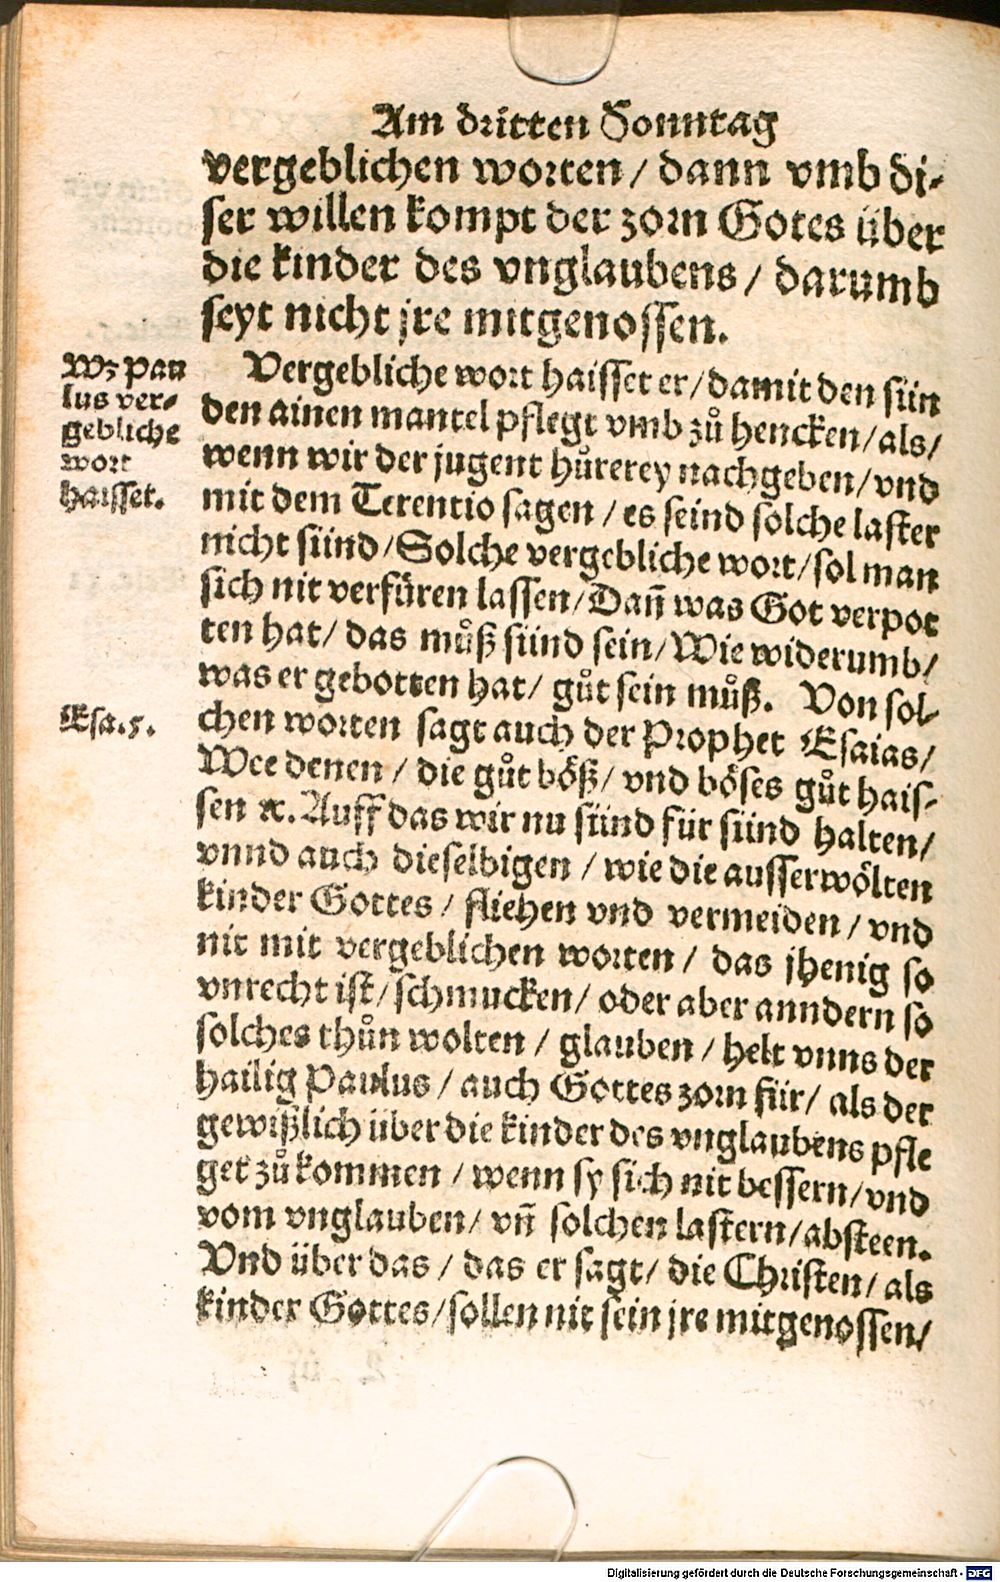 Am dritten Sonntag
vergeblichen worten / dann vmb di-
ser willen kompt der zorn Gotes über
die kinder des vnglaubens / darumb
seyt nicht jre mitgenossen.
Wz Pau
lus ver-
gebliche
wort
haisset.
Vergebliche wort haisset er / damit den sün
den ainen mantel pflegt vmb zů hencken / als /
wenn wir der jugent hůrerey nachgeben / vnd
mit dem Terentio sagen / es seind solche laster
nicht sünd / Solche vergebliche wort / sol man
sich nit verfüren lassen / Dañ was Got verpot
ten hat / das můß sünd sein / Wie widerumb /
was er gebotten hat / gůt sein můß. Von sol-
Esa.5.
chen worten sagt auch der Prophet Esaias /
Wee denen / die gůt böß / vnd böses gůt hais-
sen ꝛc. Auff das wir nu sünd für sünd halten /
vnnd auch dieselbigen / wie die ausserwölten
kinder Gottes / fliehen vnd vermeiden / vnd
nit mit vergeblichen worten / das jhenig so
vnrecht ist / schmucken / oder aber anndern so
solches thůn wolten / glauben / helt vnns der
hailig Paulus / auch Gottes zorn für / als der
gewißlich über die kinder des vnglaubens pfle
get zů kommen / wenn sy sich nit bessern / vnd
vom vnglauben / vñ solchen lastern / absteen.
Vnd über das / das er sagt / die Christen / als
kinder Gottes / sollen nit sein jre mitgenossen /
Digitalisierung gefördert durch die Deutsche Forschungsgemeinschaft - DFG